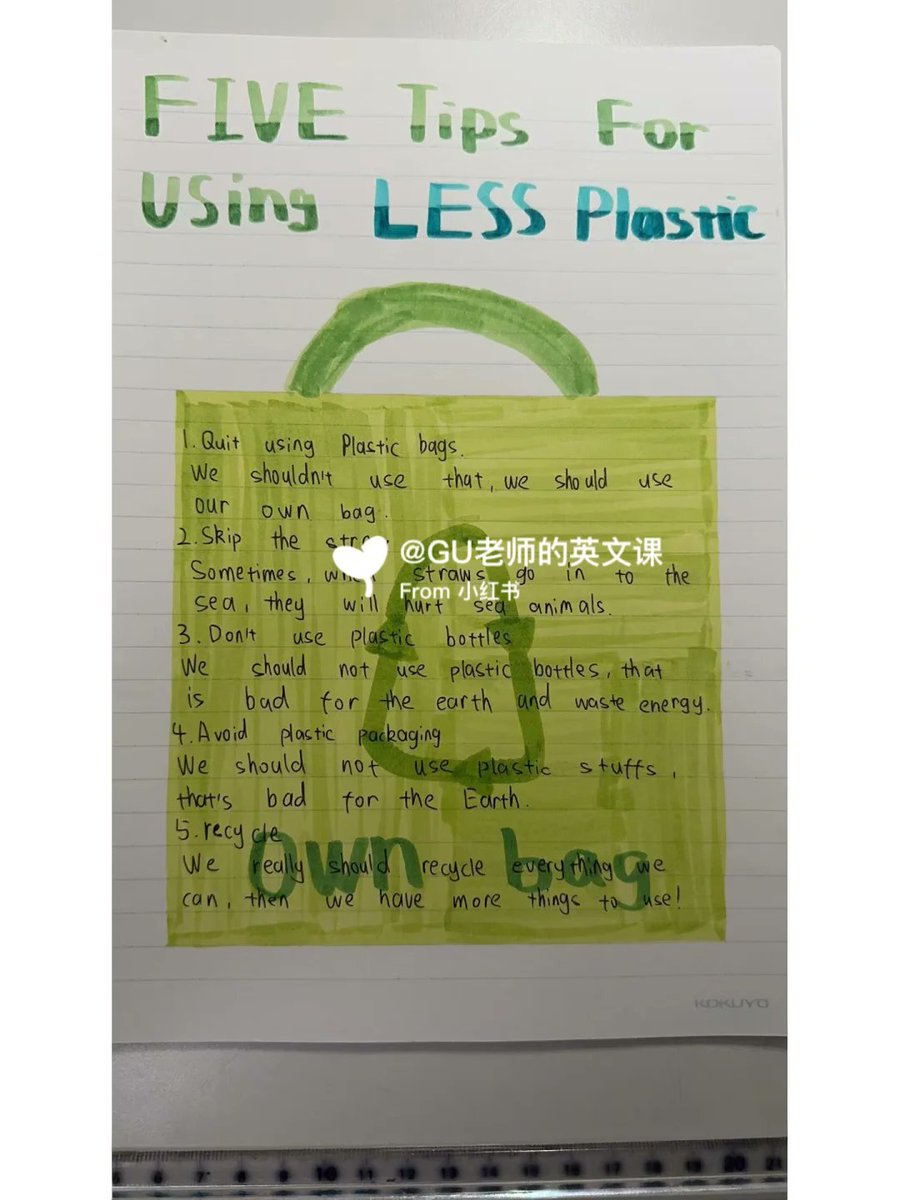 FIVE Tips For
Using LESS Plastic
1. Quit using Plastic bags.
We shouldn't use that, we should use
our own bag.
2. Skip the
@GU老师的英文课
Sometimes, when straws go in to the
From 小红书
sea, they will hurt sea animals.
3. Don't use plastic bottles
We should not use plastic bottles, that
is bad for the earth and waste energy.
4. Avoid plastic packaging
We should not use plastic stuffs,
that's bad for the Earth.
5. recycle
own bag
We really should recycle everything we
can, then we have more things to use!
KOKUYO
5 6 7 8 9 10 11 12 13 14 15 16 17 18 19 20 21